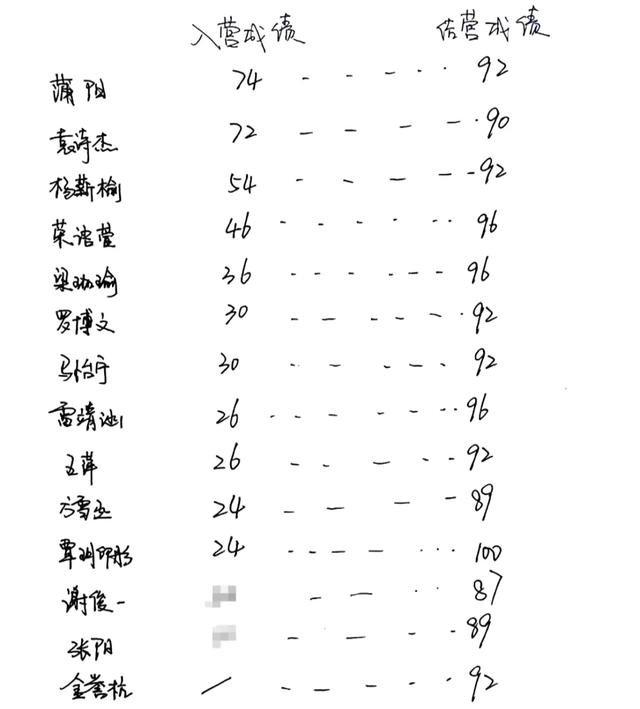 入营成绩 结营成绩
蒲阳 74 92
袁诗杰 72 90
杨斯榆 54 92
荣诺莹 46 96
梁珈瑜 36 96
罗博文 30 92
马怡宁 30 92
雷靖 26 96
王萍 26 92
方雪 24 89
覃 24 100
谢俊一 87
张阳 89
金誉杭 / 92